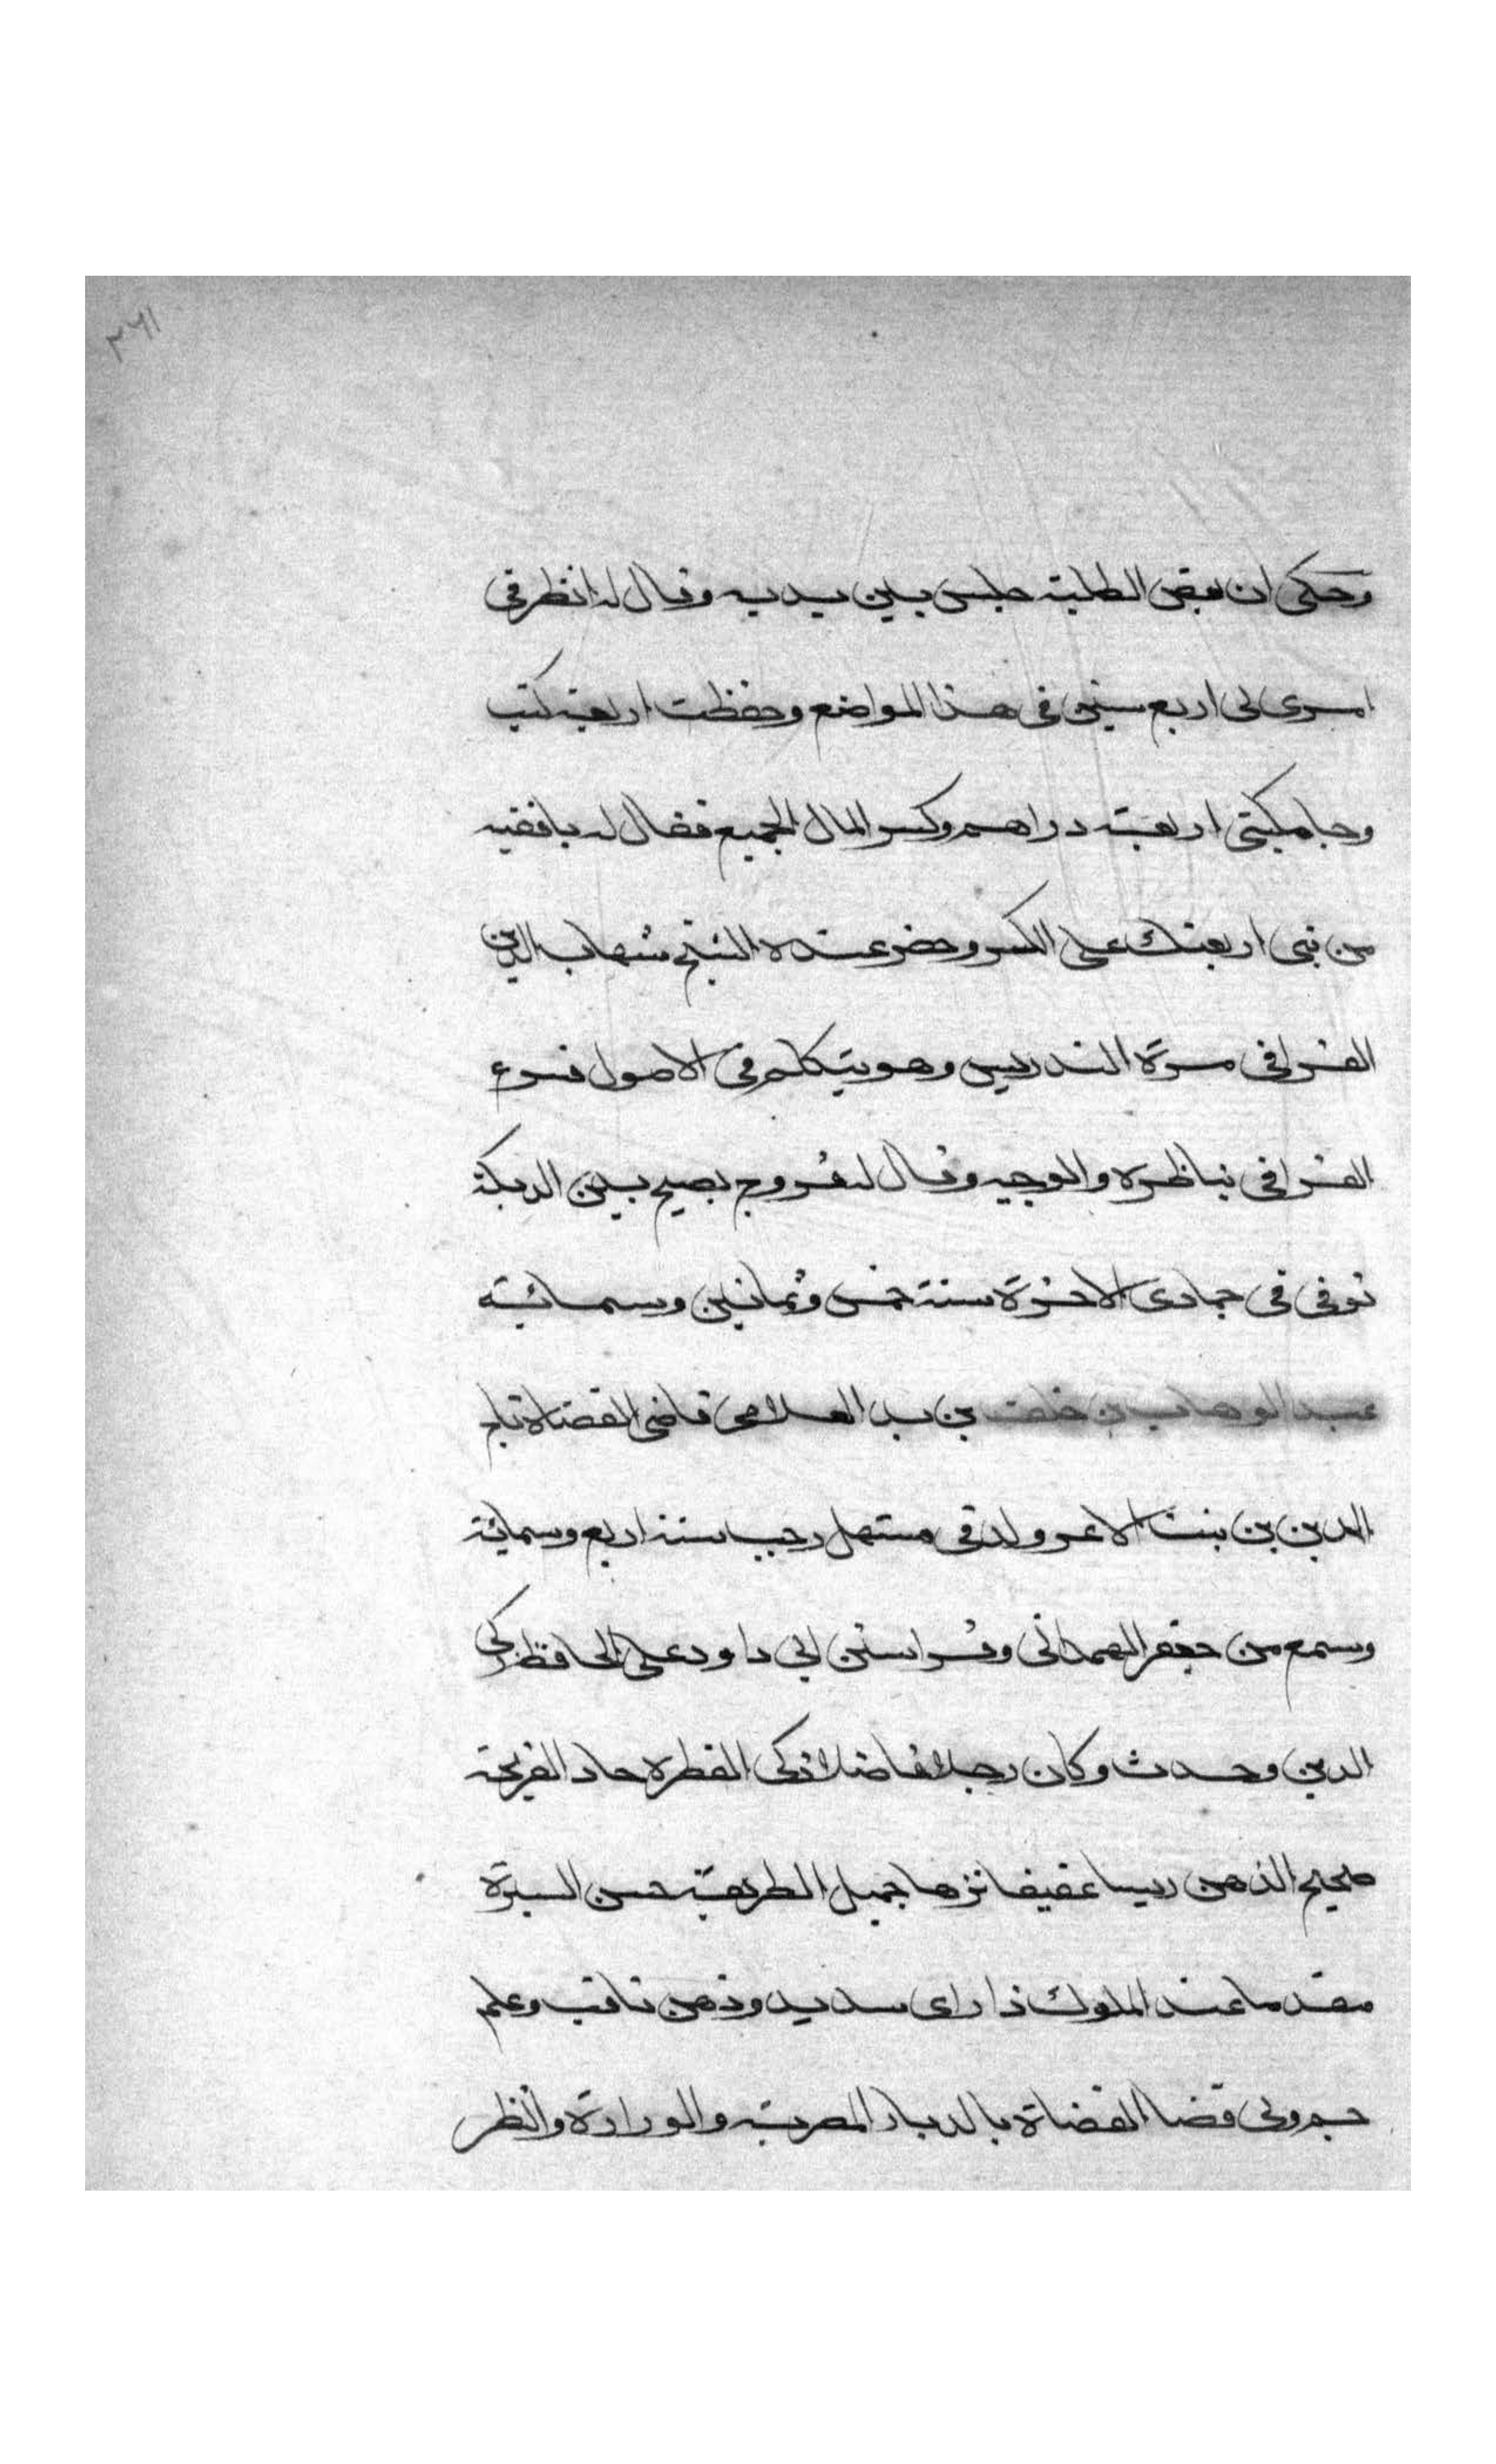 ٢٦١
وحكى ان بعض الطلبة جلس بين يديه وقال له انظر فى
امرى لى اربع سنين فى هذا المواضع وحفظت اربعة كتب
وجامكيتى اربعة دراهم وكسر المال الجميع فقال له يا فقيه
من نبى اربعتك على الكسر وحضر عنده الشيخ شهاب الدين
القرافى مرة التدريس وهو يتكلم فى الاصول فسرع
القرافى يناظره والوجيه وقال له فروج يصيح بين الديكة
توفى فى جمادى الاخرة سنة خمس وثمانين وستمائية
عبد الوهاب بن خلف بن بدر العلامى قاضى القضاة تاج
الدين بن بنت الاعز ولد فى مستهل رجب سنة اربع وستمائة
وسمع من جعفر الهمدانى وقرا سنن ابى داود على الحافظ زكى
الدين وحدث وكان رجلا فاضلا ذكى الفطرة حاد القريحة
صحيح الذهن ريسا عفيفا نزها جميل الطريقة حسن السيرة
مقدما عند الملوك ذا راى سديد وذهن ثاقب وعلم
جم ولى قضا القضاة بالديار المصرية والوزارة والنظر